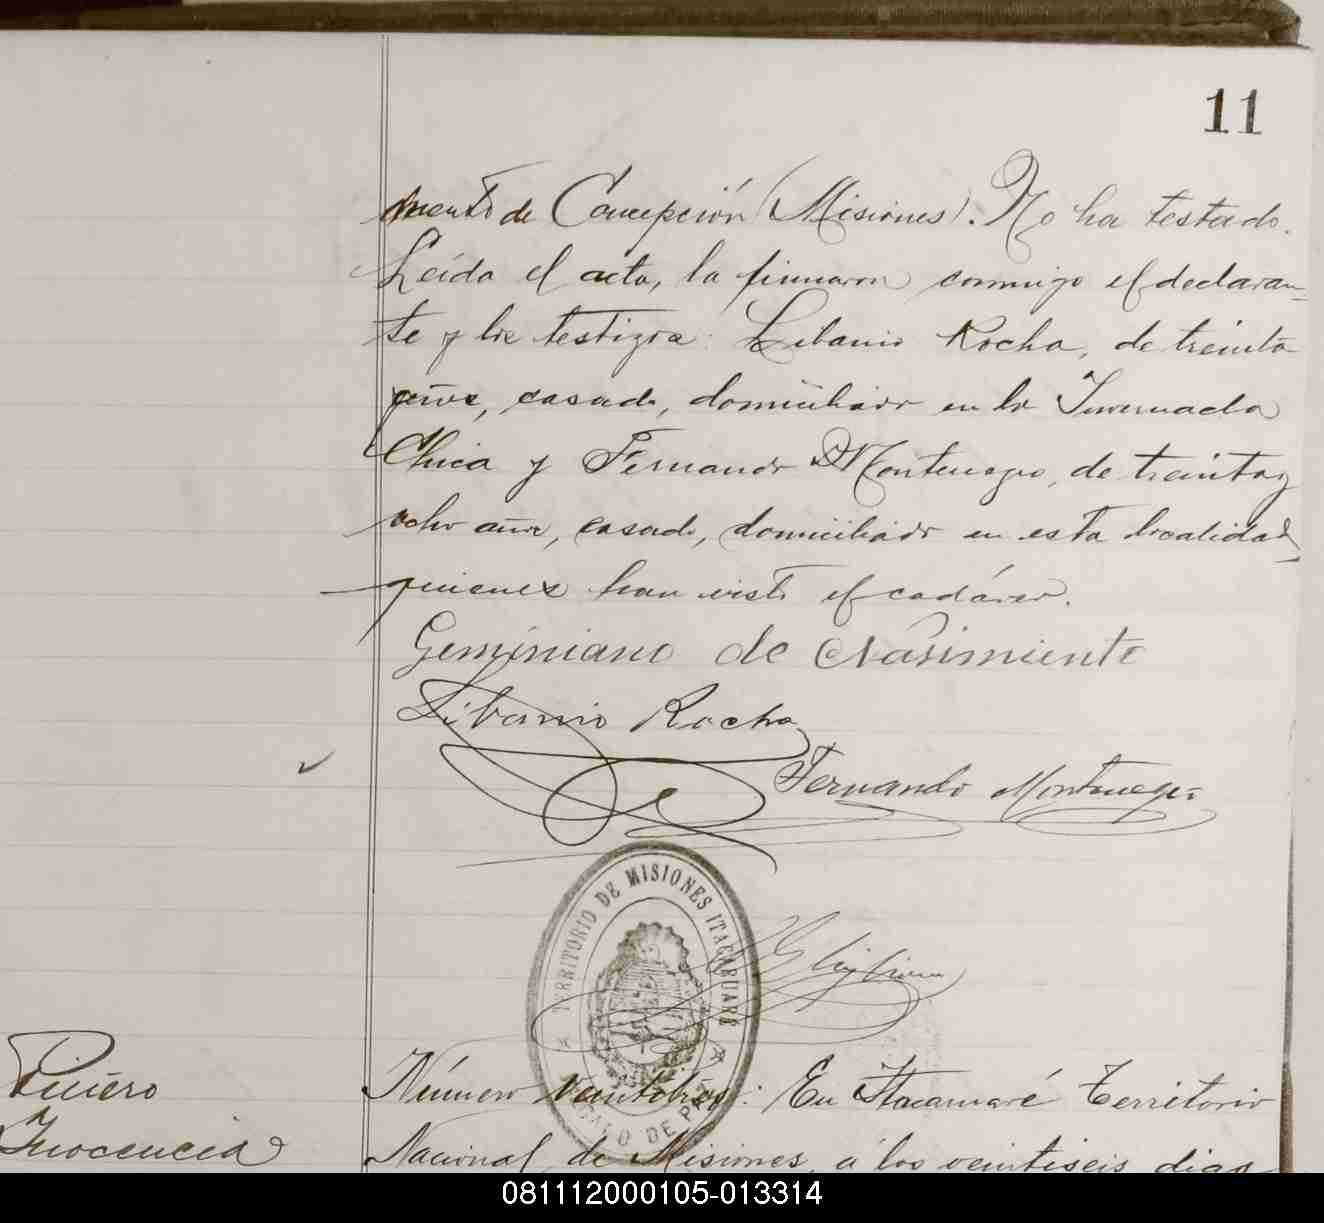 11
mento de Concepción (Misiones). No ha testado.
Leída el acta, la firmaron conmigo el declaran-
te y los testigos: Libanio Rocha, de treinta
años, casado, domiciliado en la Invernada
Chica y Fernando Montenegro, de treinta y
ocho años, casado, domiciliado en esta localidad
quienes han visto el cadáver.
Geminiano de Nasimiento
Libanio Rocha
Fernando Montenegro
TERRITORIO DE MISIONES ITACARUARÉ
DE PAZ
Piñero
Inocencia
Número veintitres: En Itacaruaré Territorio
Nacional de Misiones, á los veintiseis dias
081112000105-013314